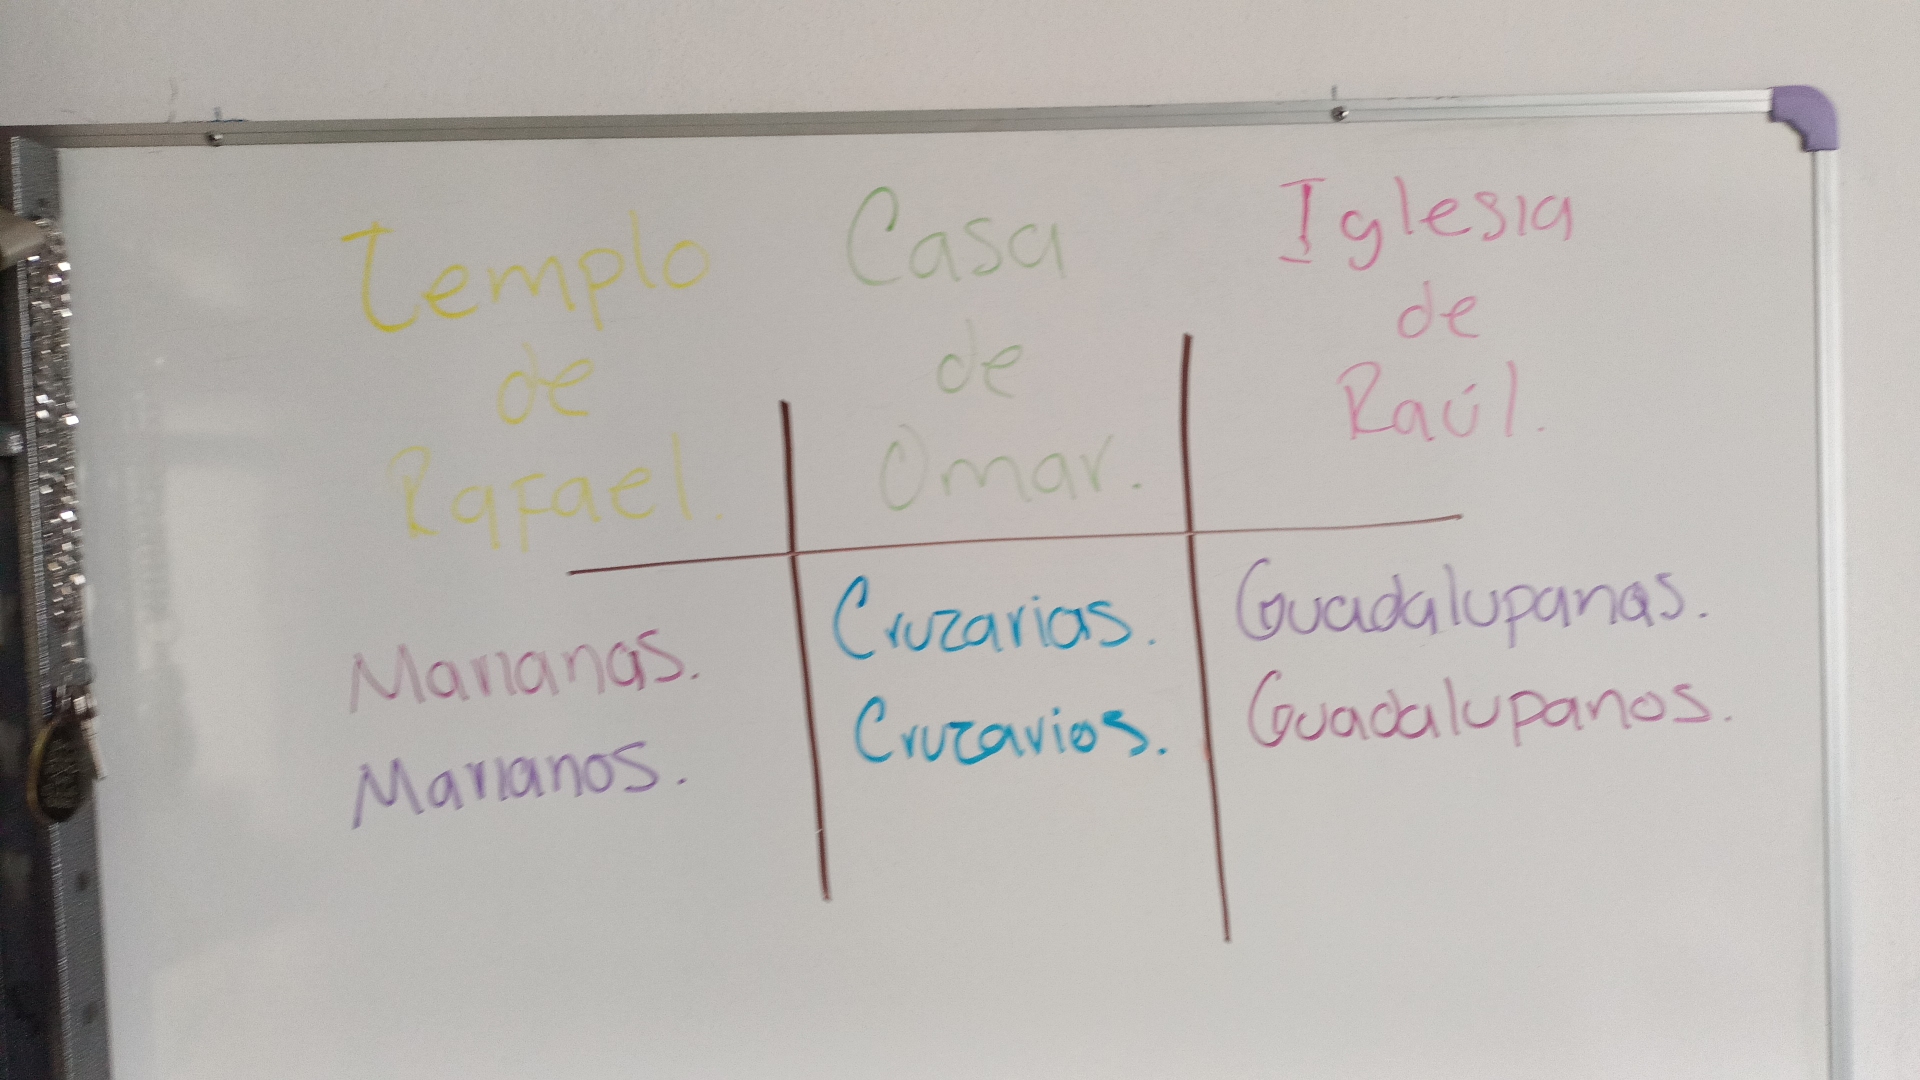 Templo
de
Rafael.
Casa
de
Omar.
Iglesia
de
Raúl.
Marianas.
Marianos.
Cruzarias.
Cruzarios.
Guadalupanas.
Guadalupanos.